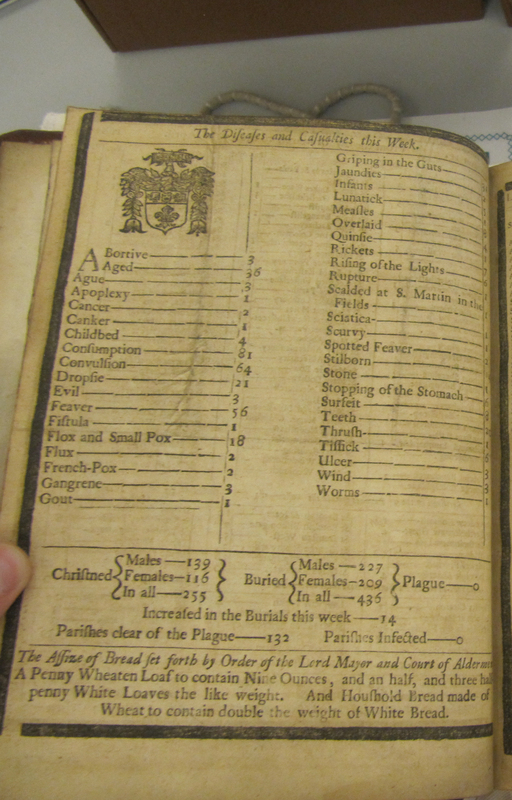 The Diſeaſes and Caſualties this Week.
ABortive—3
Aged—36
Ague—3
Apoplexy—1
Cancer—2
Canker—1
Childbed—4
Conſumption—81
Convulſion—64
Dropſie—21
Evil—3
Feaver—56
Fiſtula—1
Flox and Small Pox—18
Flux—2
French-Pox—2
Gangrene—3
Gout—1
Griping in the Guts—
Jaundies—
Infants—
Lunatick—
Meaſles—
Overlaid—
Quinſie—
Rickets—
Riſing of the Lights—
Rupture—
Scalded at S. Martin in the
Fields—
Sciatica—
Scurvy—
Spotted Feaver—
Stilborn—
Stone—
Stopping of the Stomach—
Surfeit—
Teeth—
Thruſh—
Tiſſick—
Ulcer—
Wind—
Worms—
Chriſtned { Males—139 Females—116 In all—255 }
Buried { Males—227 Females—209 In all—436 } Plague—0
Increaſed in the Burials this week—14
Pariſhes clear of the Plague—132 Pariſhes Infected—0
The Aſſize of Bread ſet forth by Order of the Lord Mayor and Court of
A Penny Wheaten Loaf to contain Nine Ounces, and an half, and three
penny White Loaves the like weight. And Houſhold Bread made of
Wheat to contain double the weight of White Bread.